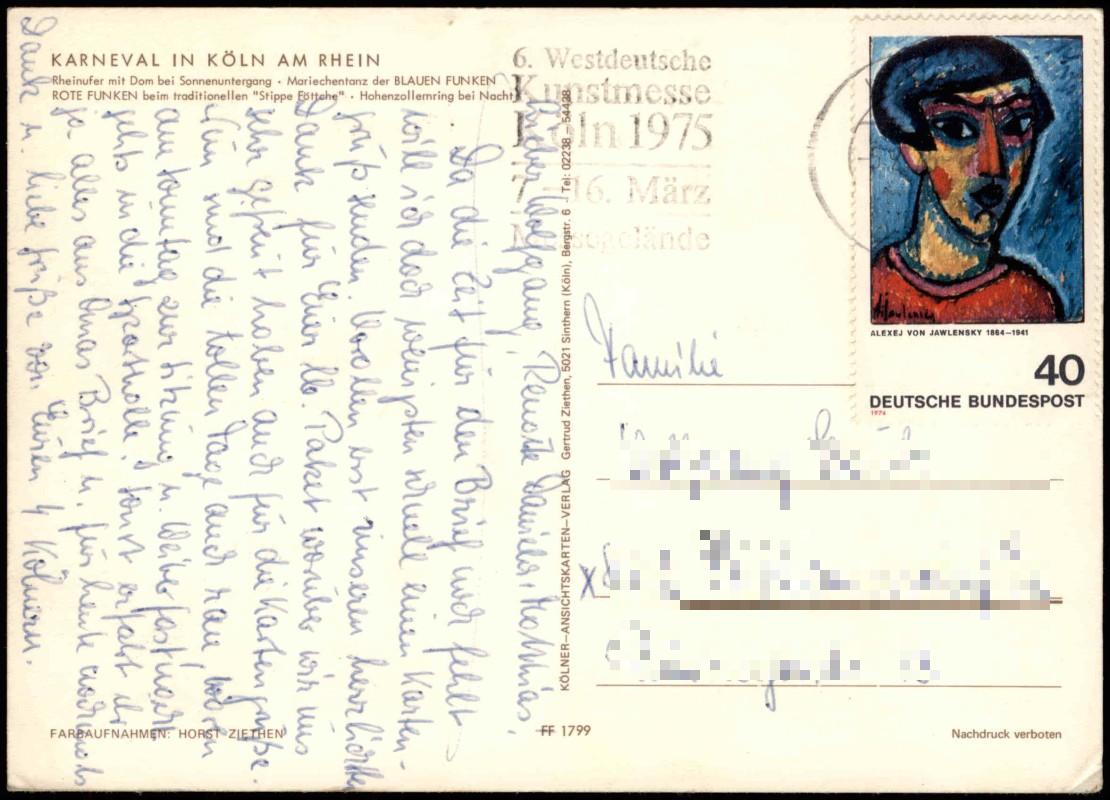 KARNEVAL IN KÖLN AM RHEIN
Rheinufer mit Dom bei Sonnenuntergang · Mariechentanz der BLAUEN FUNKEN
ROTE FUNKEN beim traditionellen "Stippe Föttche" · Hohenzollernring bei Nacht
6. Westdeutsche
Kunstmesse
Köln 1975
7.–16. März
Messegelände
Wolfgang, Renate, Daniela, Mathias,
Da die Zeit für den Brief noch fehlt
will ich doch wenigsten schnell einen Karten-
gruß senden. Vorallem erst unseren herzlichsten
Dank für Euer lb. Paket worüber wir uns
sehr gefreut haben auch für die Kartengrüße.
Nun sind die tollen Tage auch ran,
am Sonntag zur Sitzung u. Weiberfastnacht
gehts in die Sporthalle, sonst erfahrt ihr
ja alles aus Omas Brief u. für heute nochmals
Dank u. liebe Grüße von Euren 4 Kölnern.
KÖLNER-ANSICHTSKARTEN-VERLAG Gertrud Ziethen, 5021 Sinthern (Köln), Bergstr. 6 Tel: 02238 – 54438
ALEXEJ VON JAWLENSKY 1864–1941
40
DEUTSCHE BUNDESPOST
1974
Familie
x
FARBAUFNAHMEN: HORST ZIETHEN
FF 1799
Nachdruck verboten